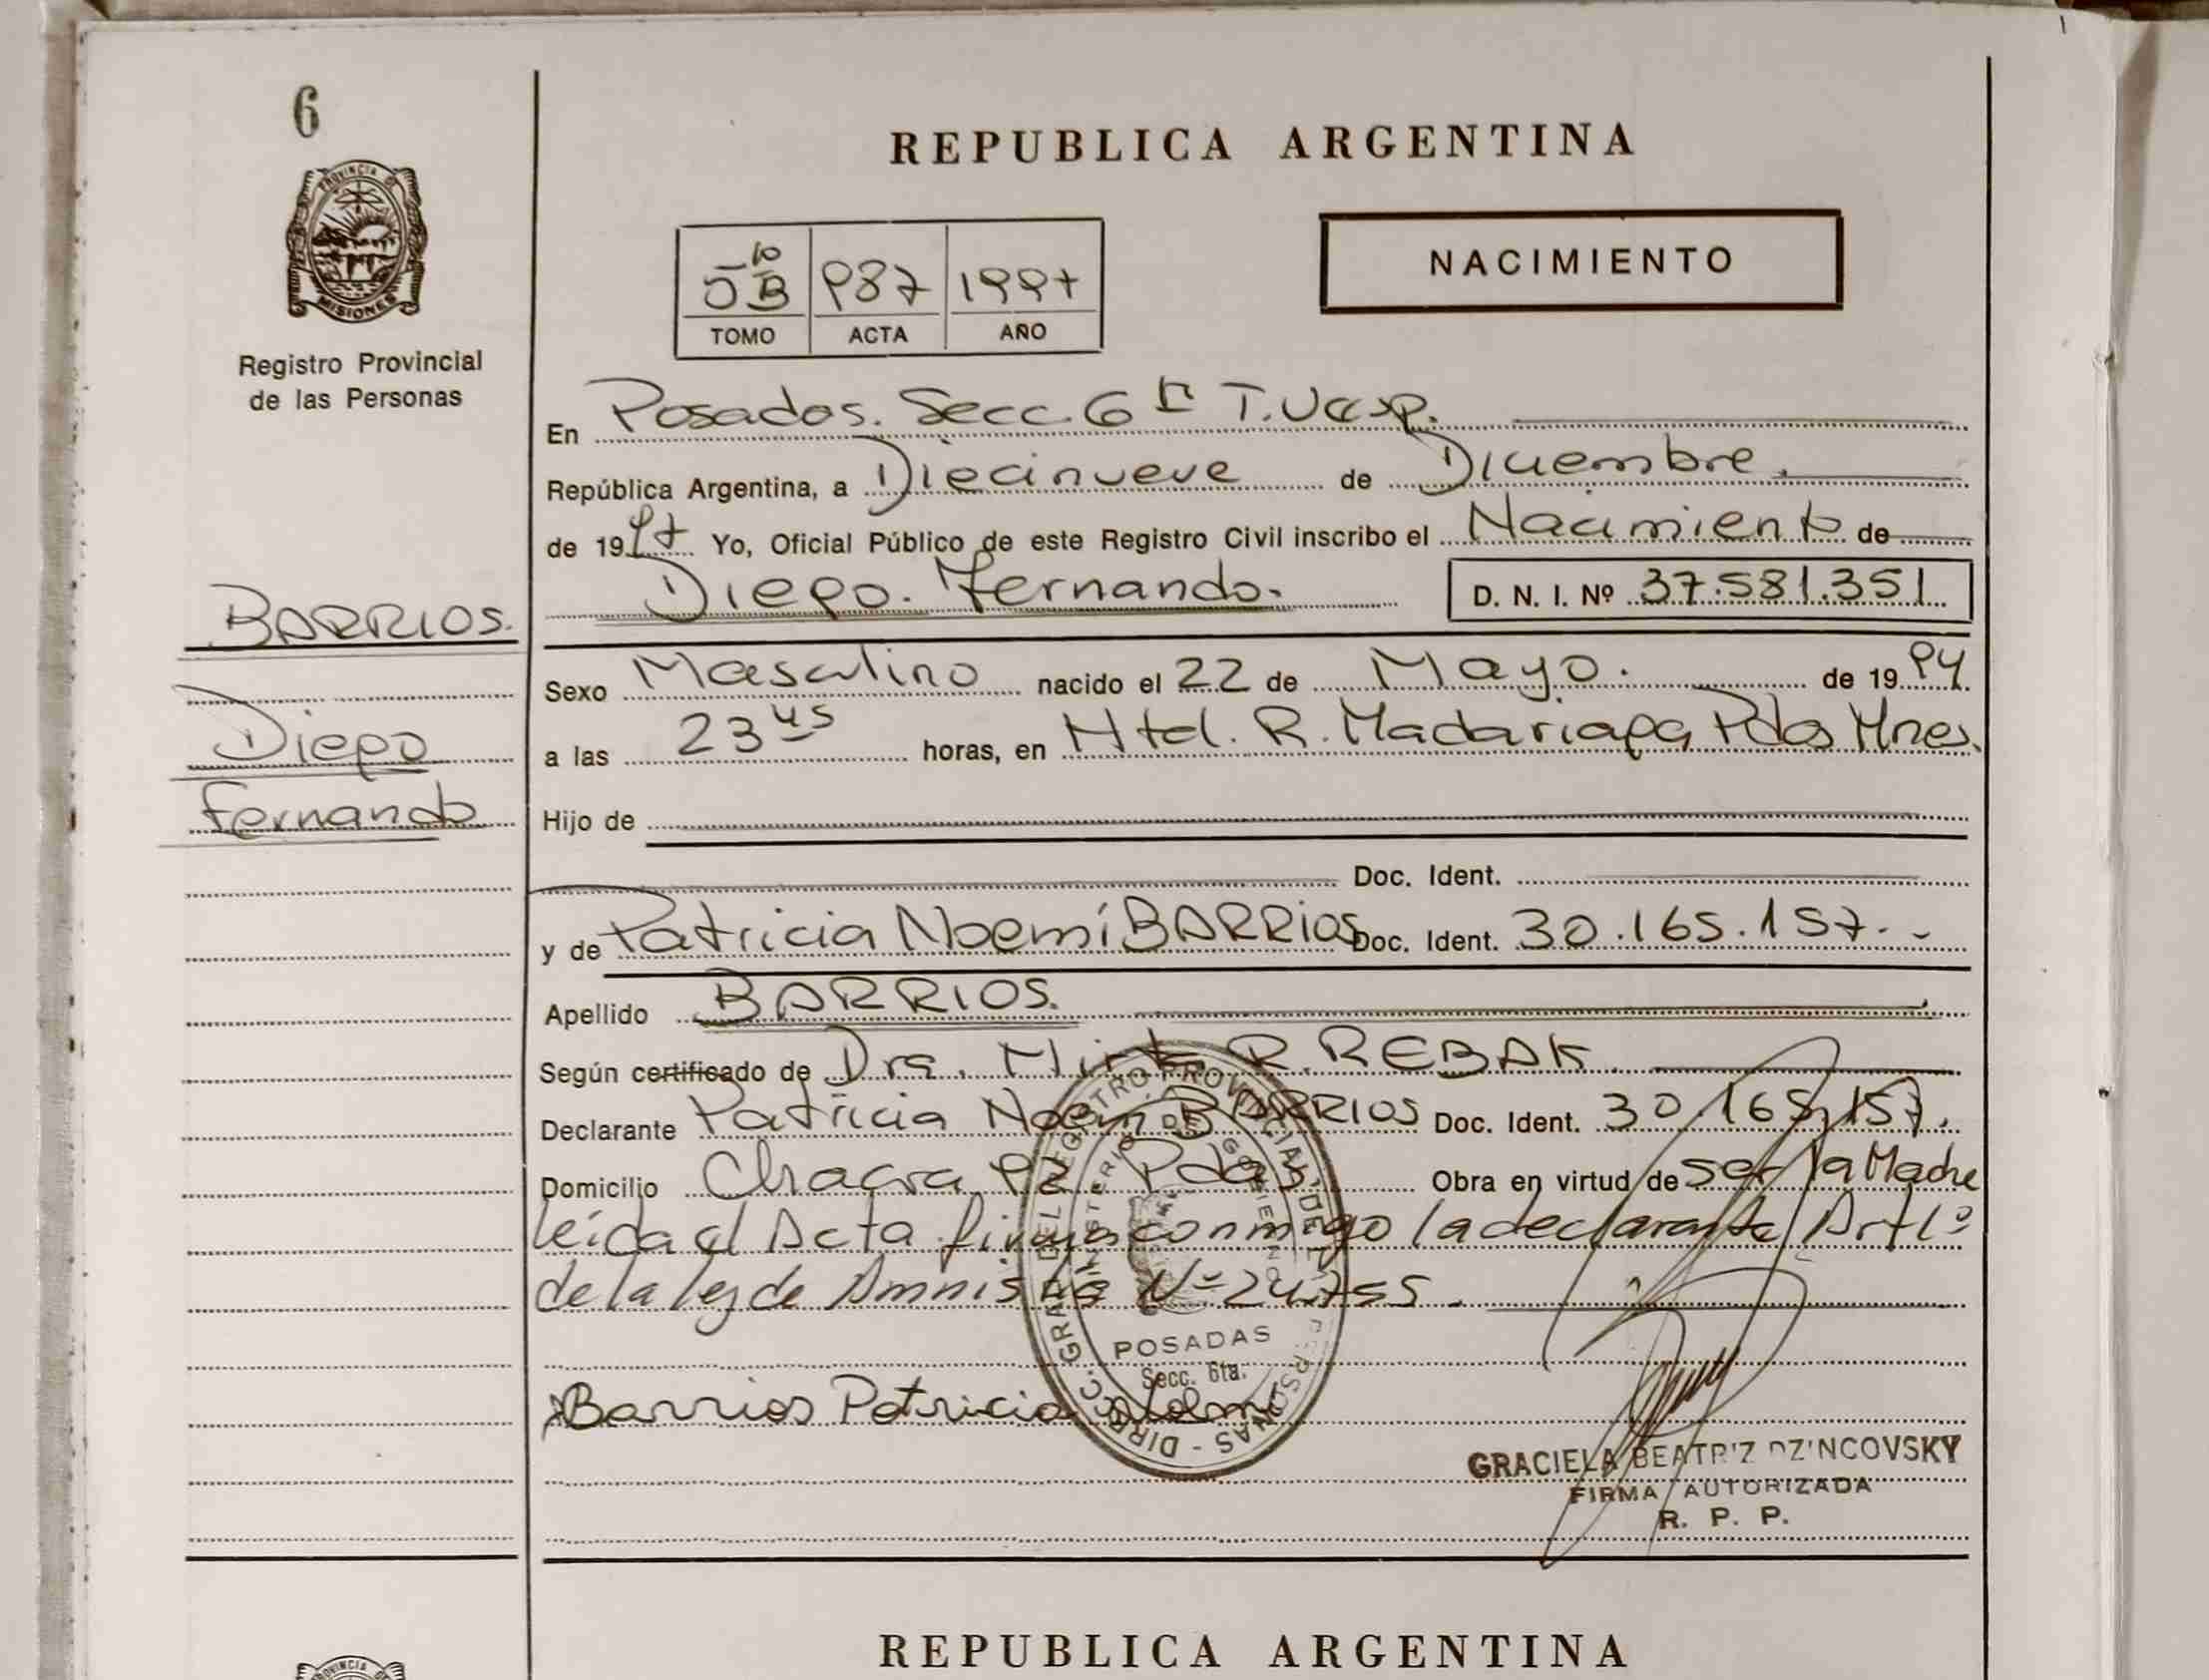 6
PROVINCIA DE
MISIONES
Registro Provincial
de las Personas
BARRIOS.
Diego
Fernando
REPUBLICA ARGENTINA
5to B 987 1997
TOMO ACTA AÑO
NACIMIENTO
En Posadas. Secc. 6ta T. Vesp.
República Argentina, a Diecinueve de Diciembre.
de 1997 Yo, Oficial Público de este Registro Civil inscribo el Nacimiento de
Diego. Fernando. D. N. I. Nº 37.581.351
Sexo Masculino nacido el 22 de Mayo. de 1994.
a las 23 45 horas, en Htal. R. Madariaga Pdas Mnes.
Hijo de
Doc. Ident.
y de Patricia Noemí BARRIOS Doc. Ident. 30.165.157.-
Apellido BARRIOS.
Según certificado de Dra. Mirta R. REBAK
Declarante Patricia Noemí BARRIOS Doc. Ident. 30.165.157.
Domicilio Chacra 92. Pdas. Obra en virtud de ser la Madre
leída el Acta firma conmigo la declarante Art 1º
de la ley de Amnistía Nº 24.755.
DIRECC. GRAL DEL REGISTRO PROVINCIAL DE LAS PERSONAS
MINISTERIO DE GOBIERNO
POSADAS
Secc. 6ta.
Barrios Patricia Noemí
GRACIELA BEATRIZ DZINCOVSKY
FIRMA AUTORIZADA
R. P. P.
REPUBLICA ARGENTINA
PROVINCIA DE